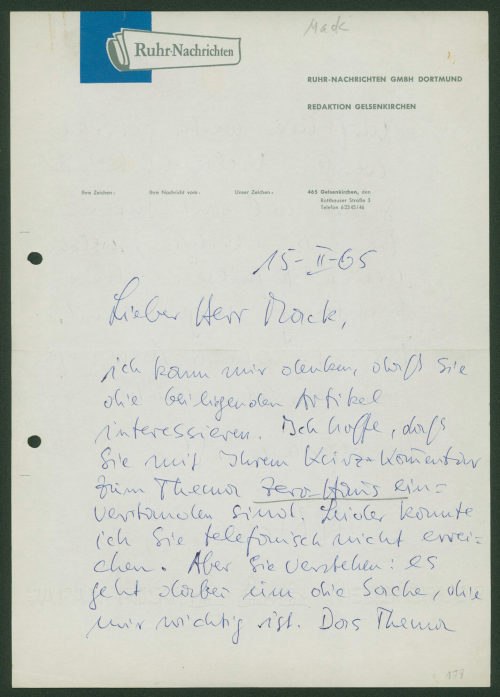 Mack
Ruhr-Nachrichten
RUHR-NACHRICHTEN GMBH DORTMUND
REDAKTION GELSENKIRCHEN
Ihre Zeichen: Ihre Nachricht vom: Unser Zeichen: 465 Gelsenkirchen, den
Rotthauser Straße 3
Telefon 62345/46
15-II-65
Lieber Herr Mack,
ich kann mir denken, daß Sie
die beiliegenden Artikel
interessieren. Ich hoffe, daß
Sie mit Ihrem Kurz-Komentar
zum Thema Zero-Haus ein=
verstanden sind. Leider konnte
ich Sie telefonisch nicht errei-
chen. Aber Sie verstehen: es
geht dabei um die Sache, die
mir wichtig ist. Das Thema
178